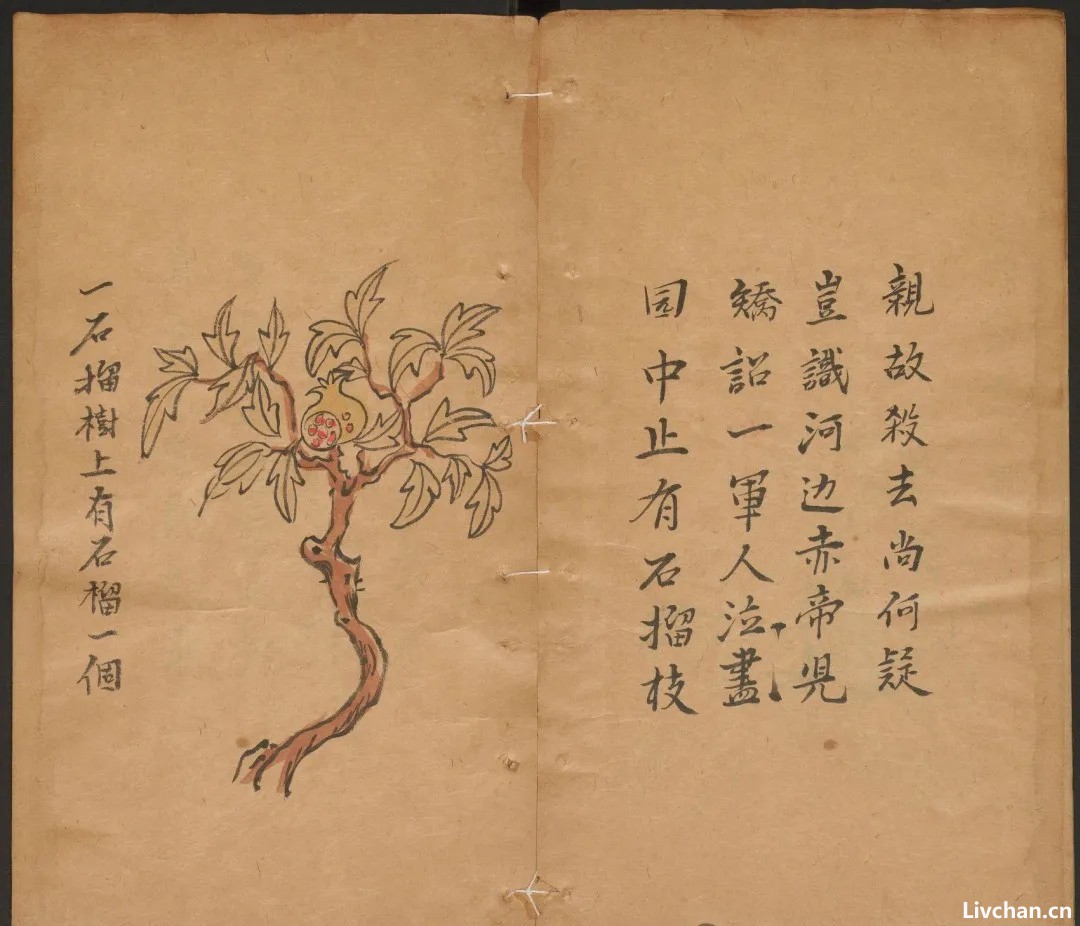 親故殺去尚何疑
豈識河边赤帝児
矯詔一軍人泣盡
园中止有石榴枝
一石榴樹上有石榴一個
Livchan.cn